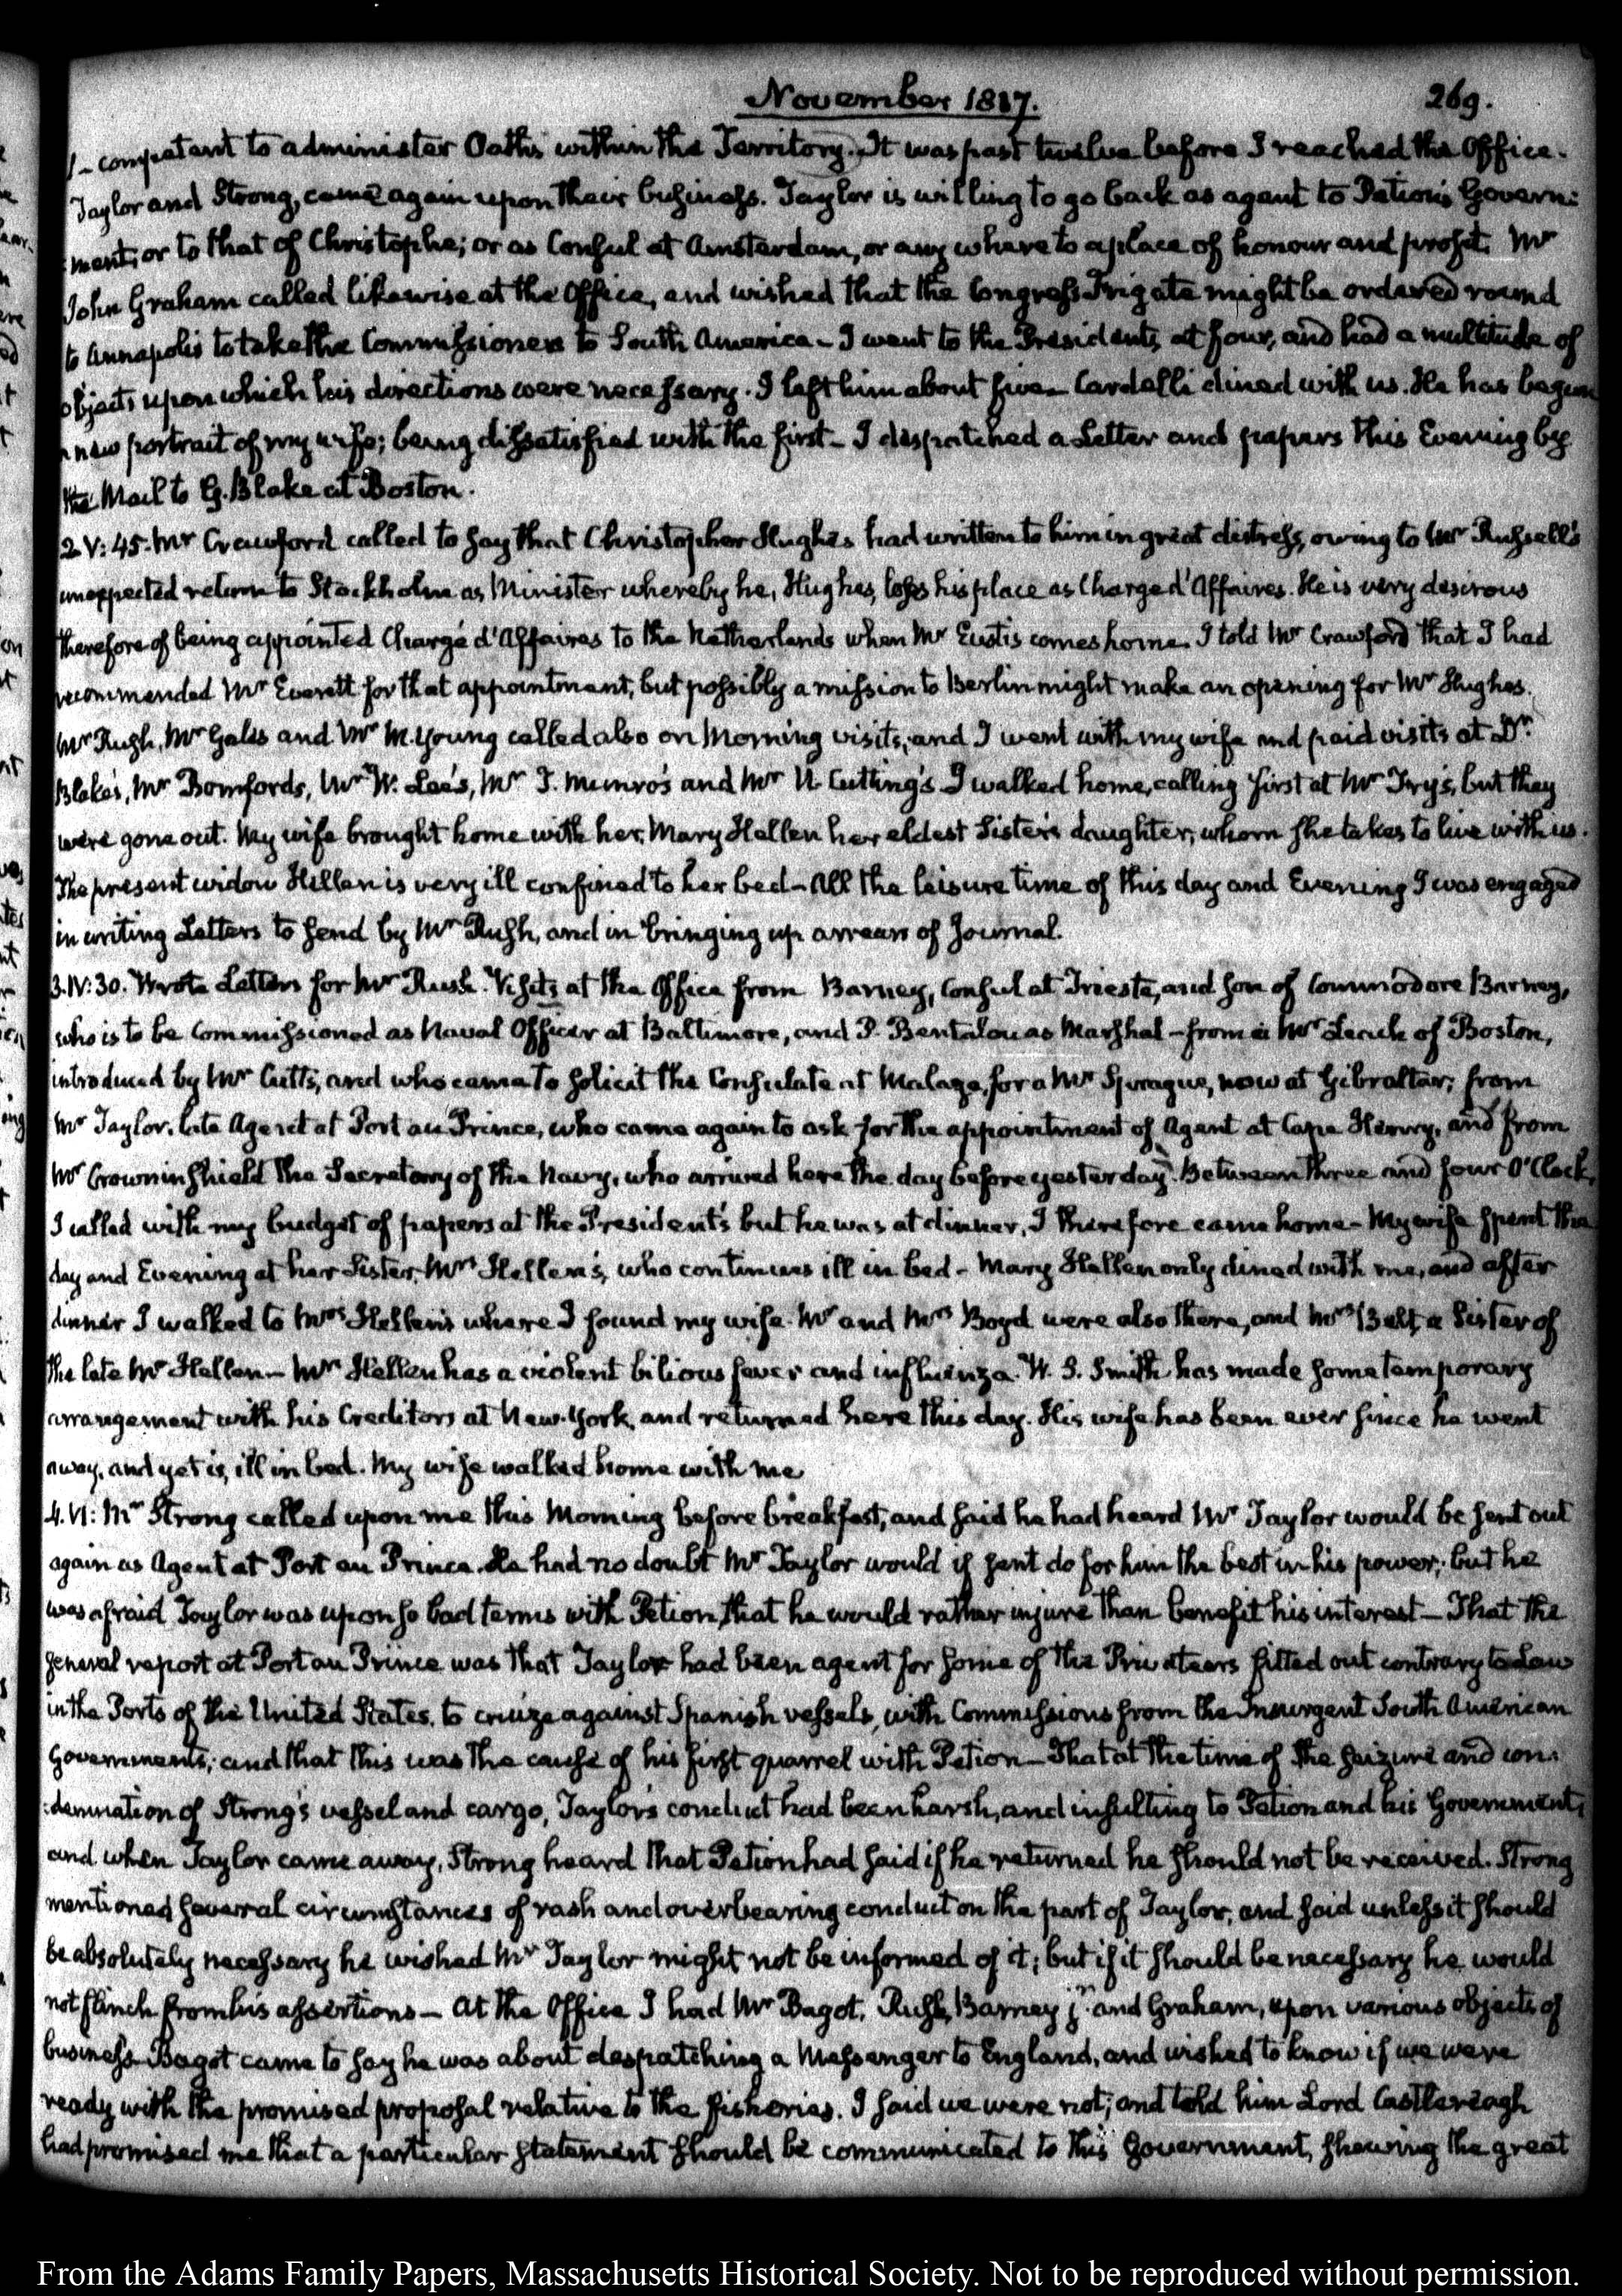 November 1817. 269.
1- competent to administer Oaths within the Territory. It was past twelve before I reached the Office.
Taylor and Strong, came again upon their business. Taylor is willing to go back as agent to Petion's Govern:
:ment, or to that of Christophe; or as Consul at Amsterdam, or any where to a place of honour and profit. Mr
John Graham called likewise at the Office, and wished that the Congress Frigate might be ordered round
to Annapolis to take the Commissioners to South America - I went to the President's, at four, and had a multitude of
objects upon which his directions were necessary. I left him about five - Cardelli dined with us. He has begun
a new portrait of my wife; being dissatisfied with the first - I dispatched a Letter and papers this Evening by
the Mail to G. Blake at Boston.
2. V: 45. Mr Crawford called to say that Christopher Hughes had written to him in great distress, owing to Mr Russell's
unexpected return to Stockholm as Minister whereby he, Hughes, loses his place as Charge d'Affaires. He is very desirous
therefore of being appointed Chargé d'Affaires to the Netherlands when Mr Eustis comes home. I told Mr Crawford that I had
recommended Mr Everett for that appointment, but possibly a mission to Berlin might make an opening for Mr Hughes.
Mr Rush, Mr Gales and Mr M. Young called also on Morning visits, and I went with my wife and paid visits at Dr.
Blake's, Mr Bomfords, Mr W. Lee's, Mr T. Munro's and Mr N. Cutting's. I walked home, calling first at Mr Fry's, but they
were gone out. My wife brought home with her, Mary Hellen her eldest Sister's daughter, whom she takes to live with us.
The present widow Hellen is very ill confined to her bed - All the leisure time of this day and Evening I was engaged
in writing Letters to send by Mr Rush, and in bringing up arrears of Journal.
3. IV: 30. Wrote Letters for Mr Rush. Visits at the Office from Barney, Consul at Trieste, and son of Commodore Barney,
who is to be Commissioned as Naval Officer at Baltimore, and P. Bentalou as Marshal - from a Mr Leach of Boston,
introduced by Mr Cutts, and who came to solicit the Consulate at Malaga, for a Mr Sprague, now at Gibraltar; from
Mr Taylor, late Agent at Port au Prince, who came again to ask for the appointment of Agent at Cape Henry, and from
Mr Crowninshield the Secretary of the Navy, who arrived here the day before yesterday. Between three and four O'Clock,
I called with my budget of papers at the President's but he was at dinner, I therefore came home - My wife spent the
day and Evening at her Sister, Mrs Hellen's, who continues ill in bed - Mary Hellen only dined with me, and after
dinner I walked to Mrs Hellen's where I found my wife. Mr and Mrs Boyd were also there, and Mrs Belt, a Sister of
the late Mr Hellen - Mrs Hellen has a violent bilious fever and influenza. W. S. Smith has made some temporary
arrangement with his Creditors at New-York, and returned here this day. His wife has been ever since he went
away, and yet is, ill in bed. My wife walked home with me
4. VI: Mr Strong called upon me this Morning before breakfast, and said he had heard Mr Taylor would be sent out
again as Agent at Port au Prince. He had no doubt Mr Taylor would if sent do for him the best in his power; but he
was afraid Taylor was upon so bad terms with Petion, that he would rather injure than benefit his interest - That the
general report at Port au Prince was that Taylor had been agent for some of the Privateers fitted out contrary to Law
in the Ports of the United States, to cruize against Spanish vessels, with Commissions from the Insurgent South American
Governments; and that this was the cause of his first quarrel with Petion - That at the time of the seizure and con:
:demnation of Strong's vessel and cargo, Taylor's conduct had been harsh, and insulting to Petion and his Government,
and when Taylor came away, Strong heard that Petion had said if he returned he should not be received. Strong
mentioned several circumstances of rash and overbearing conduct on the part of Taylor, and said unless it should
be absolutely necessary he wished Mr Taylor might not be informed of it; but if it should be necessary he would
not flinch from his assertions - At the Office I had Mr Bagot, Rush, Barney jr. and Graham, upon various objects of
business - Bagot came to say he was about despatching a Messenger to England, and wished to know if we were
ready with the promised proposal relative to the fisheries. I said we were not; and told him Lord Castlereagh
had promised me that a particular statement should be communicated to this Government, shewing the great
From the Adams Family Papers, Massachusetts Historical Society. Not to be reproduced without permission.